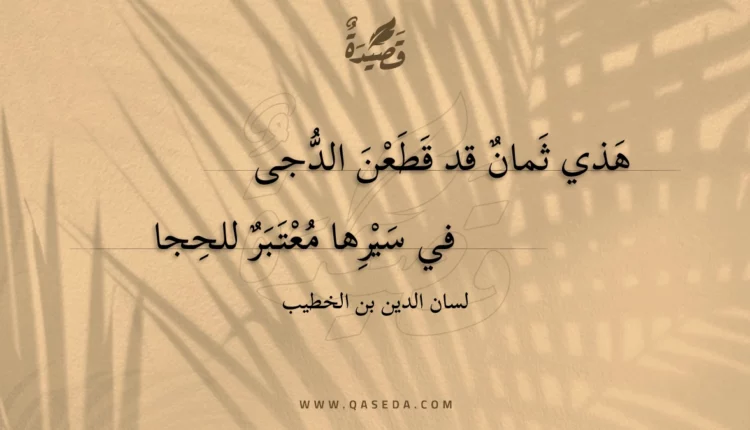 قَصِيدَةٌ
هَذي ثَمانٌ قد قَطَعْنَ الدُّجى
في سَيْرِها مُعْتَبَرٌ للحِجا
لسان الدين بن الخطيب
WWW.QASEDA.COM